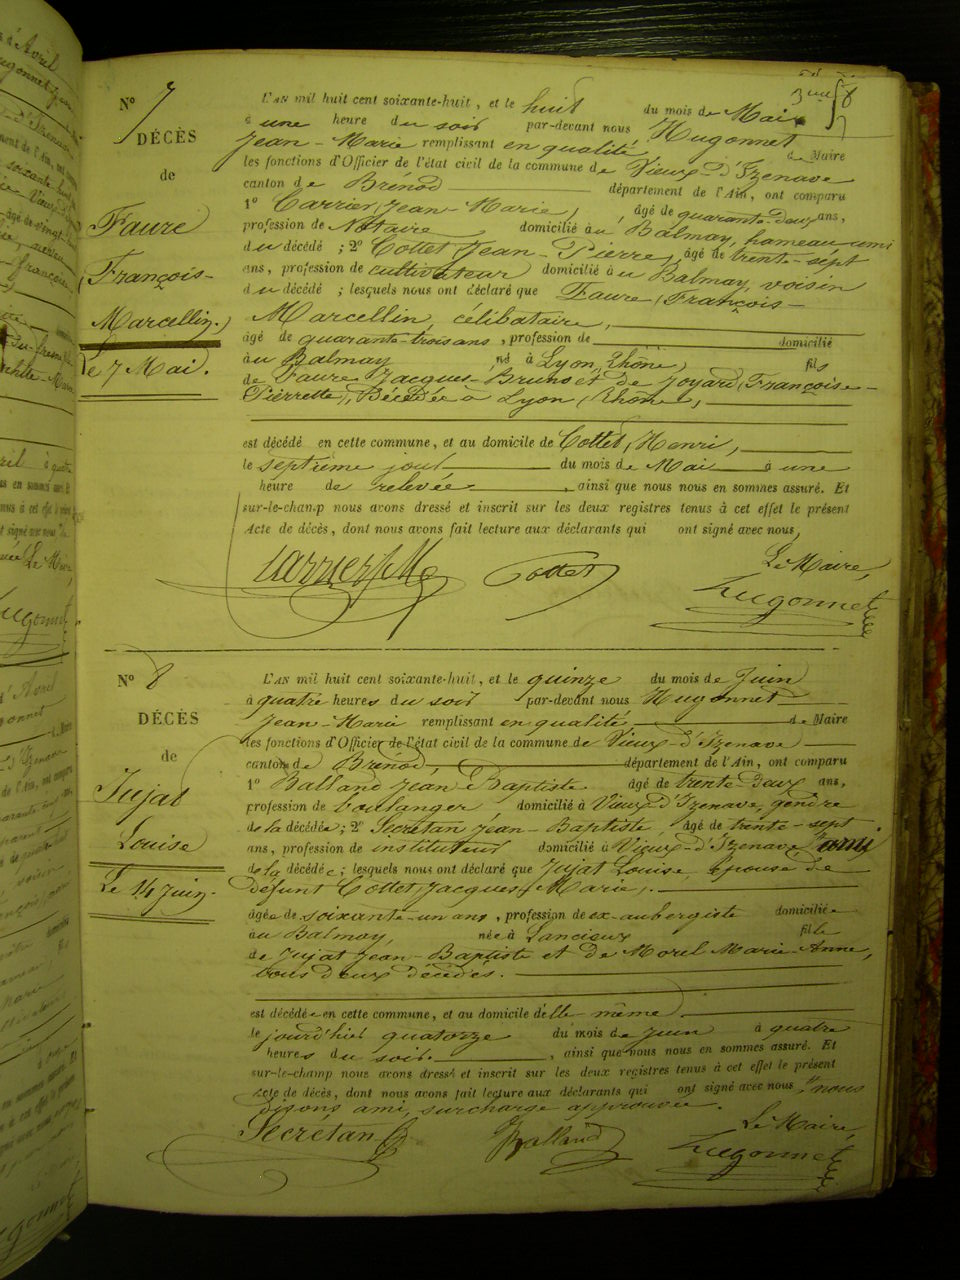 N° 7
DÉCÈS
de
Faure
(François-
Marcellin.)
le 7 Mai.
L'AN mil huit cent soixante-huit, et le huit du mois de Mai
à une heure du soir par-devant nous Hugonnet
Jean-Marie remplissant en qualité de Maire
les fonctions d'Officier de l'état civil de la commune de Vieux-d'Izenave
canton de Brénod département de l'Ain, ont comparu
1° Carrier, Jean-Marie, âgé de quarante-deux ans,
profession de Notaire domicilié à u Balmay, hameau ami
du décédé ; 2° Cottet Jean-Pierre, âgé de trente-sept
ans, profession de cultivateur domicilié à u Balmay, voisin
du décédé ; lesquels nous ont déclaré que Faure (François-
Marcellin, célibataire,
âgé de quarante-trois ans, profession de domicilié
au Balmay, né à Lyon, (Rhône) fils
de Faure Jacques-Bruno et de Joyard (Françoise-
Pierrette), Décédée à Lyon (Rhône,
est décédé en cette commune, et au domicile de Cottet, Henri,
le septième jour du mois de Mai à une
heure de relevée, ainsi que nous nous en sommes assuré. Et
sur-le-champ nous avons dressé et inscrit sur les deux registres tenus à cet effet le présent
Acte de décès, dont nous avons fait lecture aux déclarants qui ont signé avec nous,
Le Maire,
Carrier JM Cottet Hugonnet
N° 8
DÉCÈS
de
Jujat
Louise
Le 14 Juin.
L'AN mil huit cent soixante-huit, et le quinze du mois de Juin
à quatre heures du soir par-devant nous Hugonnet
Jean-Marie remplissant en qualité de Maire
les fonctions d'Officier de l'état civil de la commune de Vieux-d'Izenave
canton de Brénod, département de l'Ain, ont comparu
1° Balland Jean Baptiste âgé de trente-deux ans,
profession de boulanger domicilié à Vieux-d'Izenave, gendre
de la décédée; 2° Secretan Jean-Baptiste, âgé de trente-sept
ans, profession de instituteur domicilié à Vieux-d'Izenave, ami
de la décédée; lesquels nous ont déclaré que Jujat Louise épouse de
défunt Cottet Jacques-Marie,
âgée de soixante-un ans, profession de ex-aubergiste domiciliée
au Balmay, née à Lancieux fille
de Jujat Jean-Baptiste et de Morel Marie-Anne,
tous deux décédés.
est décédée en cette commune, et au domicile d'elle même.
le jourd'hier quatorze du mois de Juin à quatre
heures du soir., ainsi que nous nous en sommes assuré. Et
sur-le-champ nous avons dressé et inscrit sur les deux registres tenus à cet effet le présent
Acte de décès, dont nous avons fait lecture aux déclarants qui ont signé avec nous, nous
disons ami, surcharge approuvée.
Le Maire,
Secretan JBalland Hugonnet